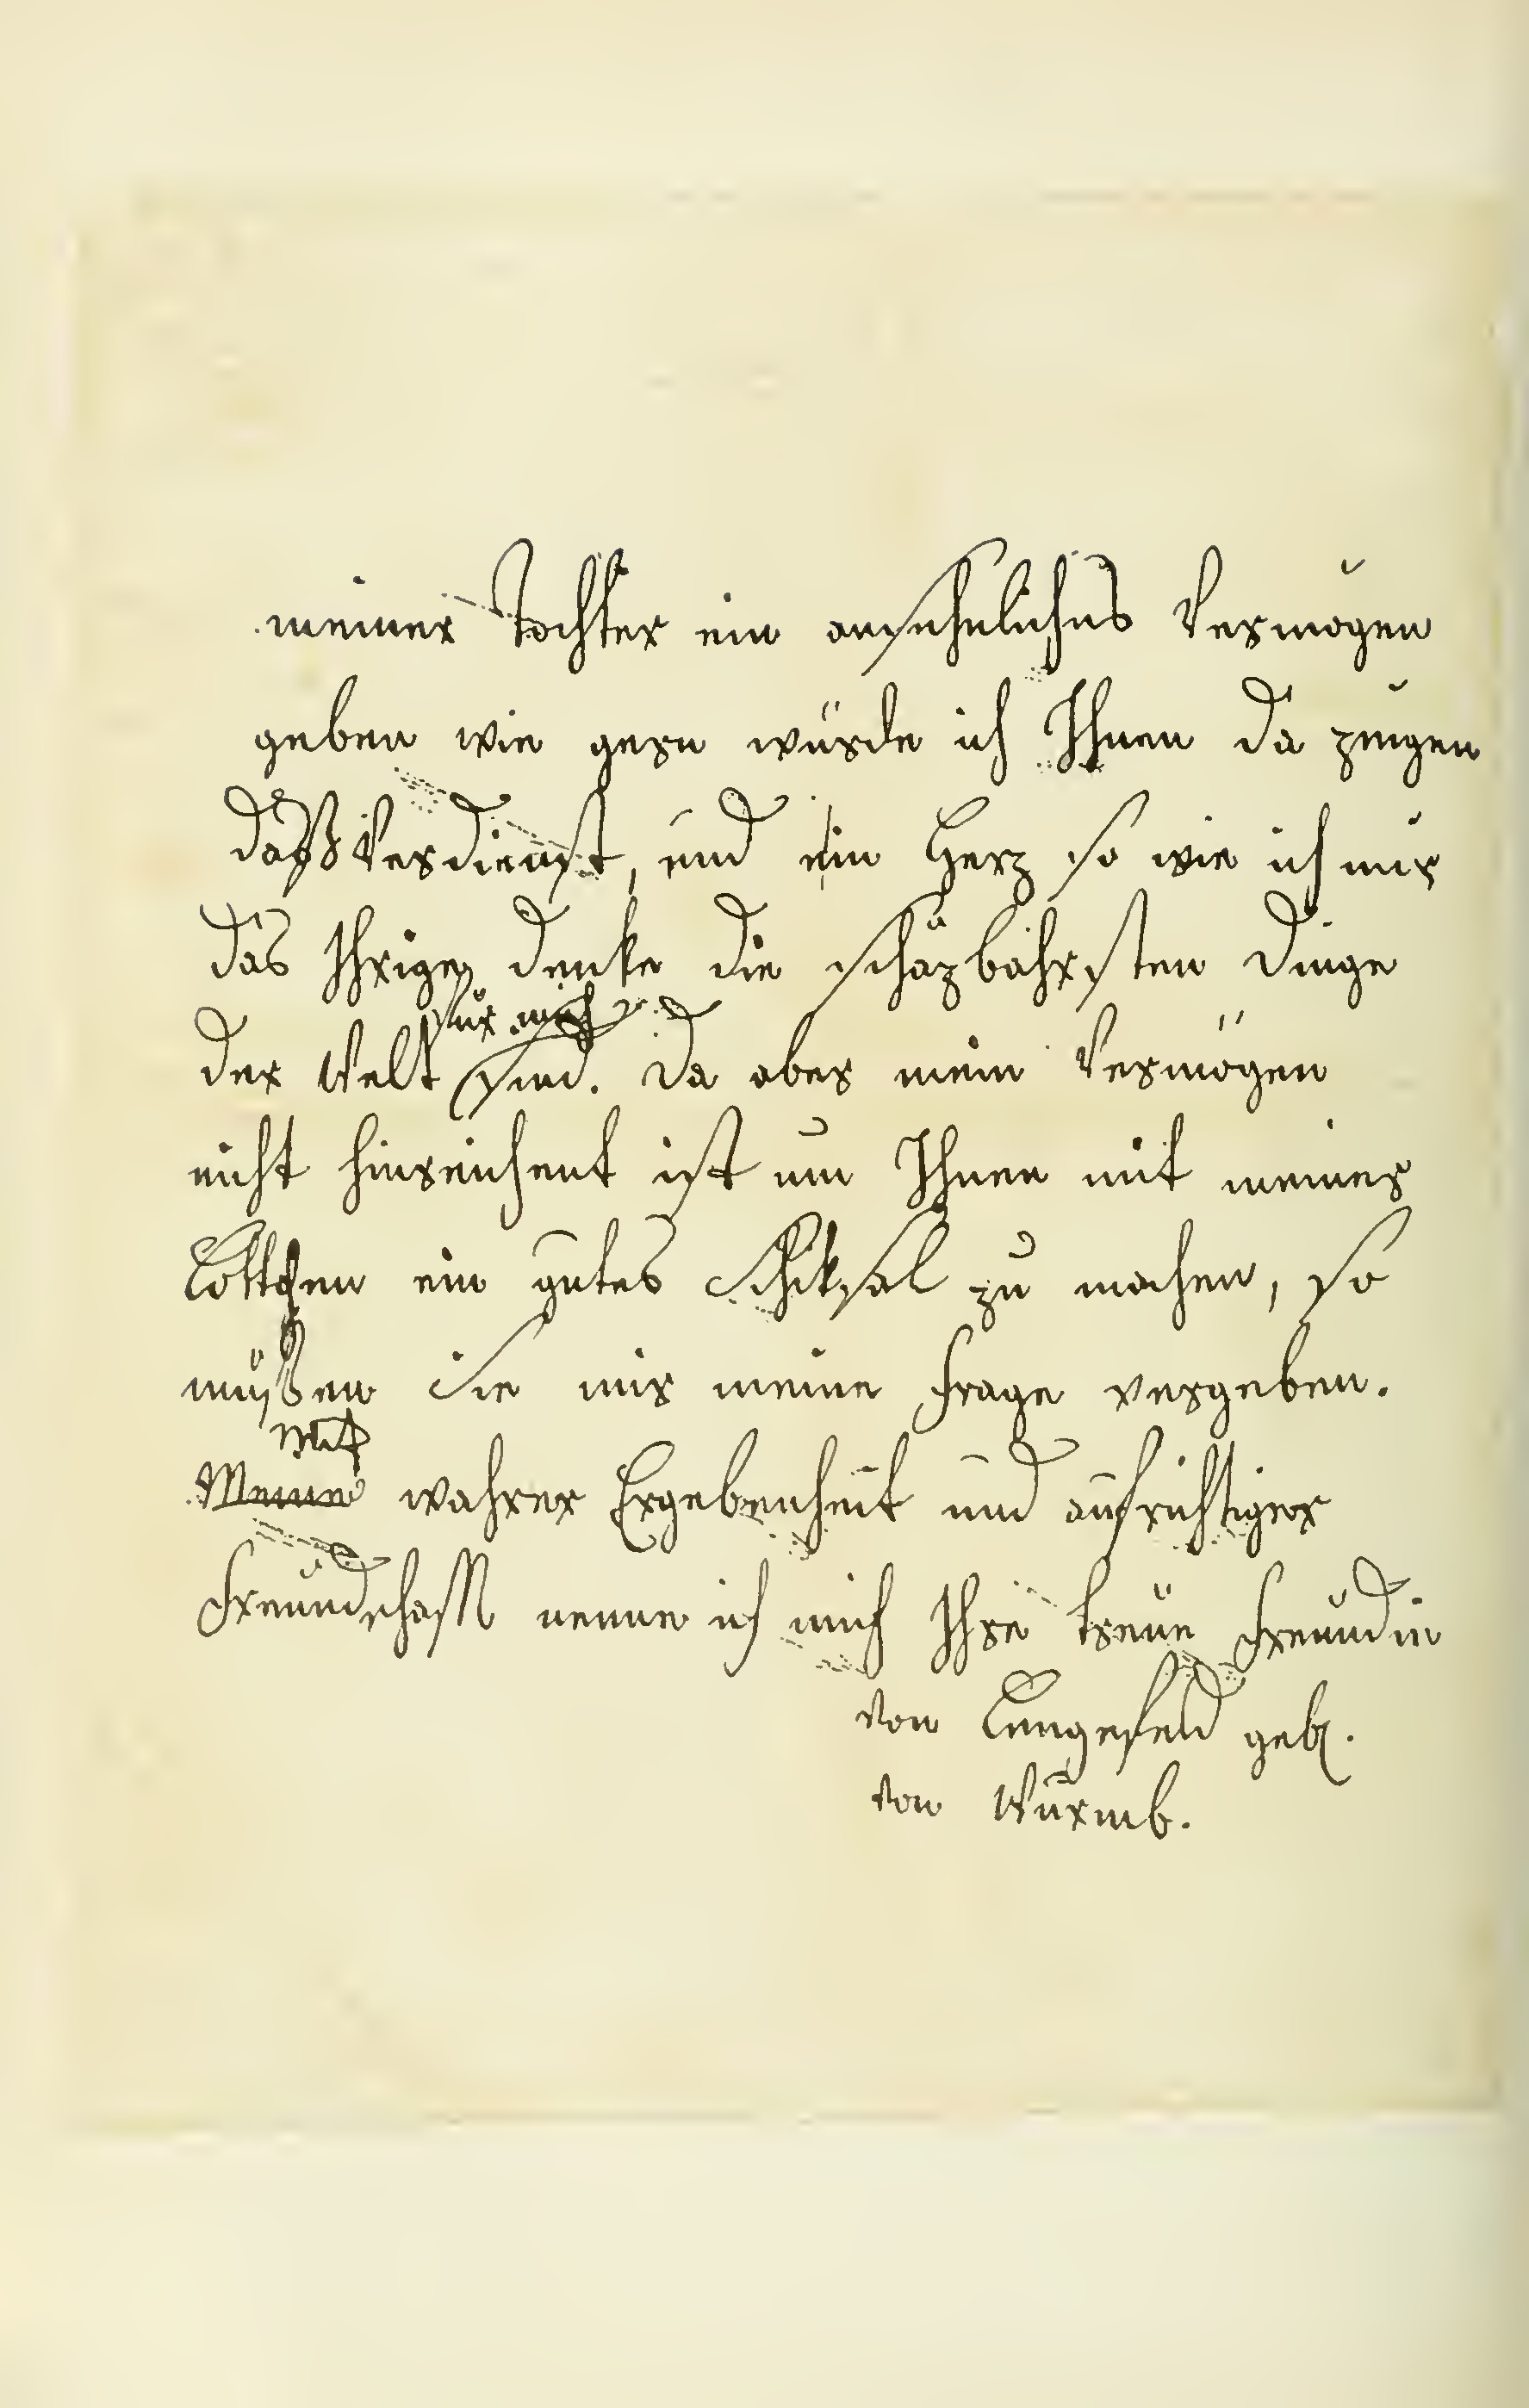 meiner Tochter ein ansehnliches Vermögen
geben wie gern würde ich Ihnen da zeugen
daß Verdienst, und ein Herz so wie ich mir
das Ihrige denke die schäzbahrsten Dinge
für mich
der Welt sind. Da aber mein Vermögen
nicht hinreichent ist um Ihnen mit meiner
Lottchen ein gutes Schiksal zu machen, so
müßen Sie mir meine Frage vergeben.
Mit
Meine wahrer Ergebenheit und aufrichtiger
Freundschafft nenne ich mich Ihre treue Freundin
von Lengefeld geb.
von Wurmb.